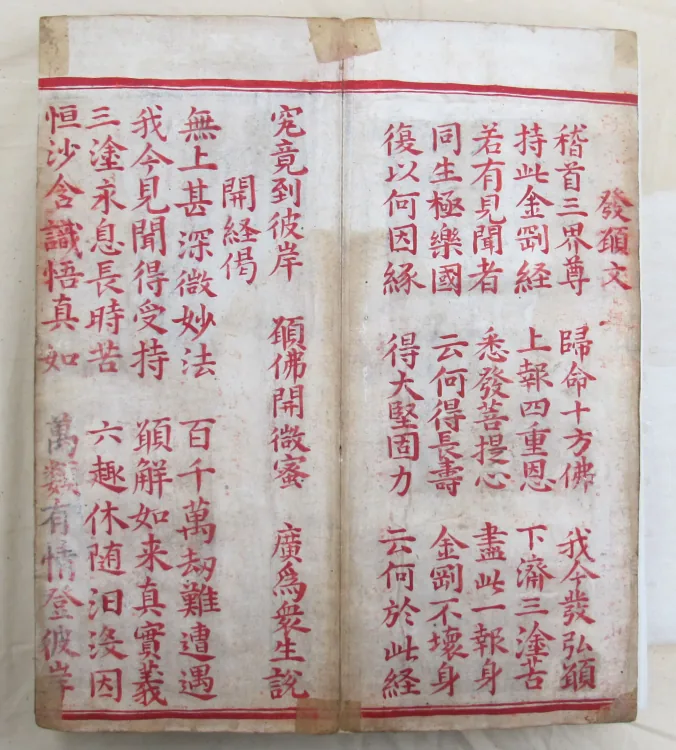 發願文
稽首三界尊 歸命十方佛 我今發弘願
持此金剛経 上報四重恩 下濟三塗苦
若有見聞者 悉發菩提心 盡此一報身
同生極樂國 云何得長壽 金剛不壞身
復以何因緣 得大堅固力 云何於此経
究竟到彼岸 願佛開微蜜 廣爲衆生説
開経偈
無上甚深微妙法 百千萬刼難遭遇
我今見聞得受持 願解如来真實義
三塗永息長時苦 六趣休随汩没因
恒沙含識悟真如 萬類有情登彼岸